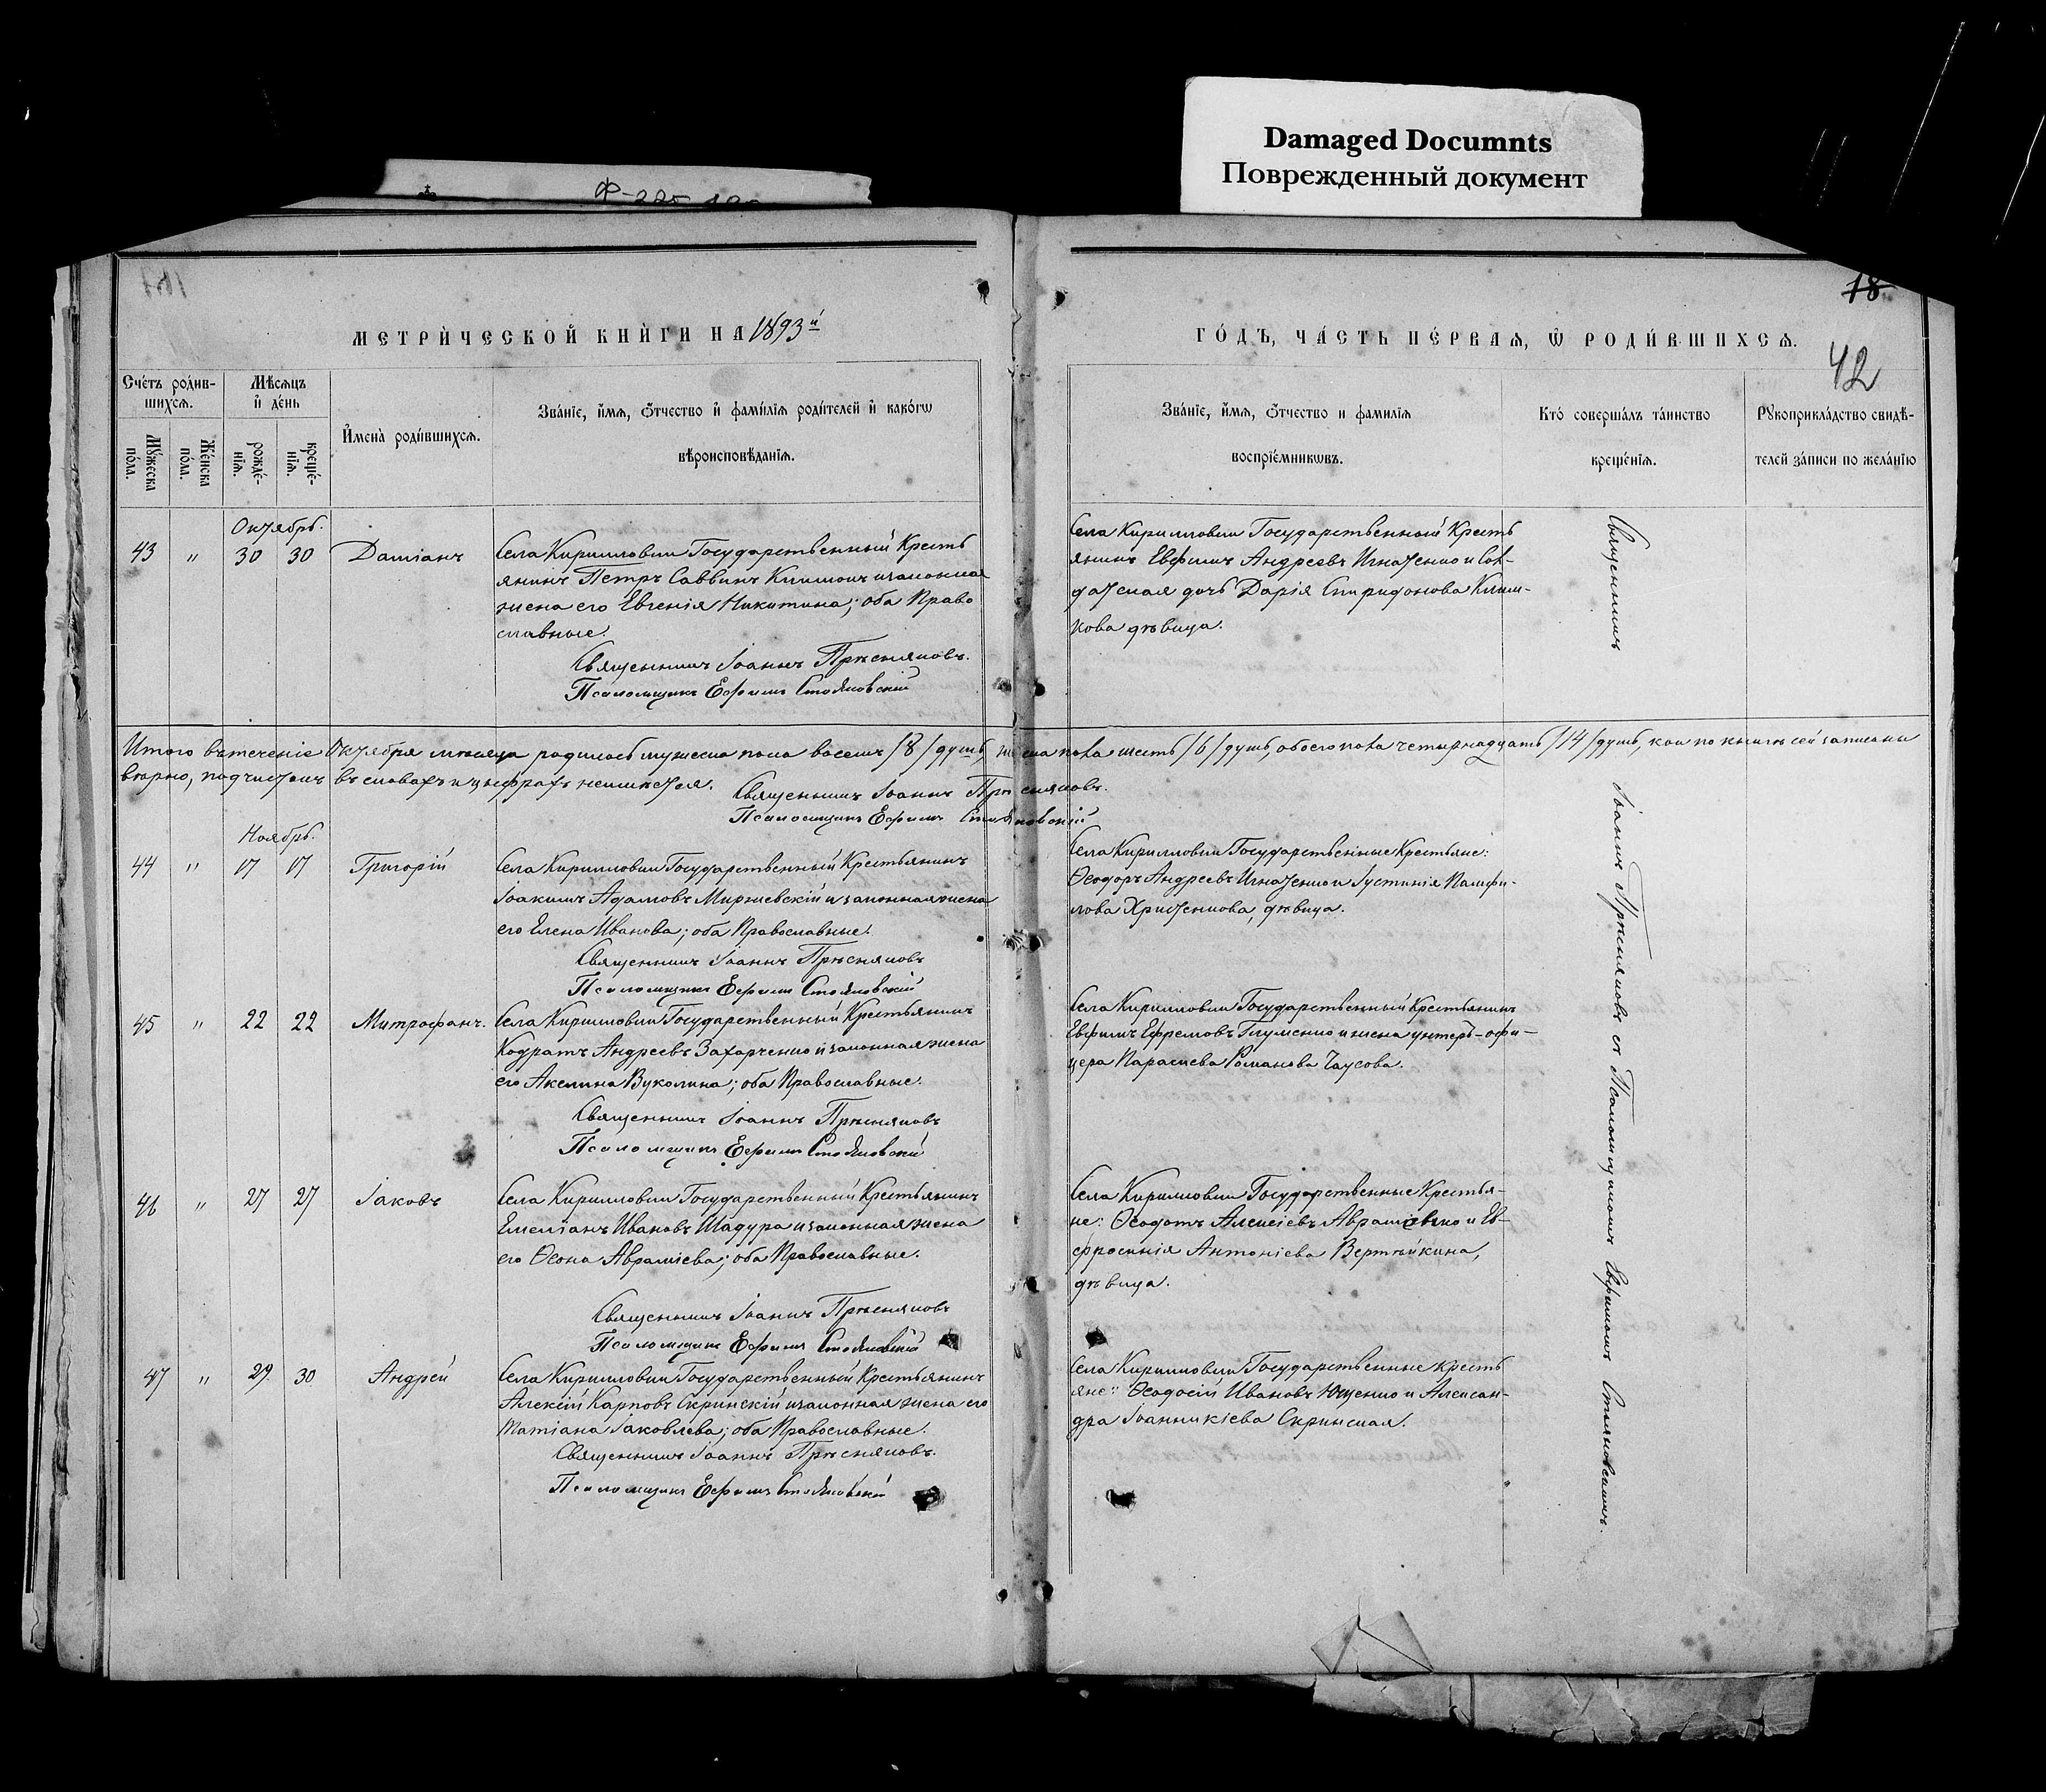 Damaged Documnts
Поврежденный документ
Ф-225
18
МЕТРИ́ЧЕСКОЙ КНИ́ГИ НА 1893й
ГО́ДЪ, ЧА́СТЬ ПЕ́РВАЯ, Ѡ РОДИ́ВШИХСѦ.
42
Сче́тъ роди́в-
шихсѧ.
Мꙋ́жеска по́ла.
Же́нска по́ла.
Мѣ́сѧцъ
и҆ де́нь
рожде́-
нїѧ.
креще́-
нїѧ.
И҆мена̀ роди́вшихсѧ.
Зва́нїе, и҆́мѧ, ѻ҆́тчество и҆ фами́лїѧ роди́телей и҆ како́гѡ
вѣроисповѣ́данїѧ.
Зва́нїе, и҆́мѧ, ѻ҆́тчество и фами́лїѧ
воспрїе́мникѡвъ.
Кто̀ соверша́лъ та́инство
креще́нїѧ.
Рꙋкоприкла́дство свидѣ́-
телей за́писи по жела́нїю
Октябрь.
43 " 30 30 Даміанъ
Села Кирилловки Государственный Кресть
янинъ Петръ Саввинъ Климокъ и законная
жена его Евгенія Никитина; оба Право
славные.
Священникъ Іоаннъ Прѣсняковъ.
Псаломщикъ Ефимъ Стояновскій
Села Кирилловки Государственный Кресть
янинъ Евфимъ Андреевъ Игнатенко и Сол-
датская дочь Дарія Спиридонова Клим-
кова дѣвица.
Священникъ Іоаннъ Прѣсняковъ съ Псаломщикомъ Евфимомъ Стояновскимъ.
Итого въ теченіе Октября мѣсяца родилось мужеска пола восемь /8/ душъ, женска пола шесть /6/ душъ, обоего пола четырнадцать /14/ душъ, кои по книгѣ сей записаны
вѣрно, подчистокъ въ словахъ и цыфрахъ не имѣется.
Священникъ Іоаннъ Прѣсняковъ.
Псаломщикъ Ефимъ Стояновскій
Ноябрь.
44 " 17 17 Григорій
Села Кирилловки Государственный Крестьянинъ
Іоакимъ Адамовъ Мирневскій и законная жена
его Елена Иванова; оба Православные.
Священникъ Іоаннъ Прѣсняковъ
Псаломщикъ Ефимъ Стояновскій
Села Кирилловки Государственные Крестьяне:
Ѳеодоръ Андреевъ Игнатенко и Іустинія Памфи-
лова Христенкова, дѣвица.
45 " 22 22 Митрофанъ.
Села Кирилловки Государственный Крестьянинъ
Кодратъ Андреевъ Захарченко и законная жена
его Акилина Вуколина; оба Православные.
Священникъ Іоаннъ Прѣсняковъ
Псаломщикъ Ефимъ Стояновскій
Села Кирилловки Государственный Крестьянинъ
Евфимъ Ефремовъ Глуменко и жена унтеръ-офи-
цера Параскева Романова Чаусова.
46 " 27 27 Іаковъ
Села Кирилловки Государственный Крестьянинъ
Емеліанъ Ивановъ Шадура и законная жена
его Ѳеона Авраміева; оба Православные.
Священникъ Іоаннъ Прѣсняковъ
Псаломщикъ Ефимъ Стояновскій
Села Кирилловки Государственные Крестья-
не: Ѳеодотъ Алексіевъ Авраменко и Ев-
фросинія Антоніева Вертѣйкина,
дѣвица.
47 " 29 30 Андрей
Села Кирилловки Государственный Крестьянинъ
Алексій Карповъ Скринскій и законная жена его
Татіана Іаковлева; оба Православные.
Священникъ Іоаннъ Прѣсняковъ.
Псаломщикъ Ефимъ Стояновскій
Села Кирилловки Государственные кресть
яне: Ѳеодосій Ивановъ Ющенко и Алексан-
дра Іоанникіева Скринская.